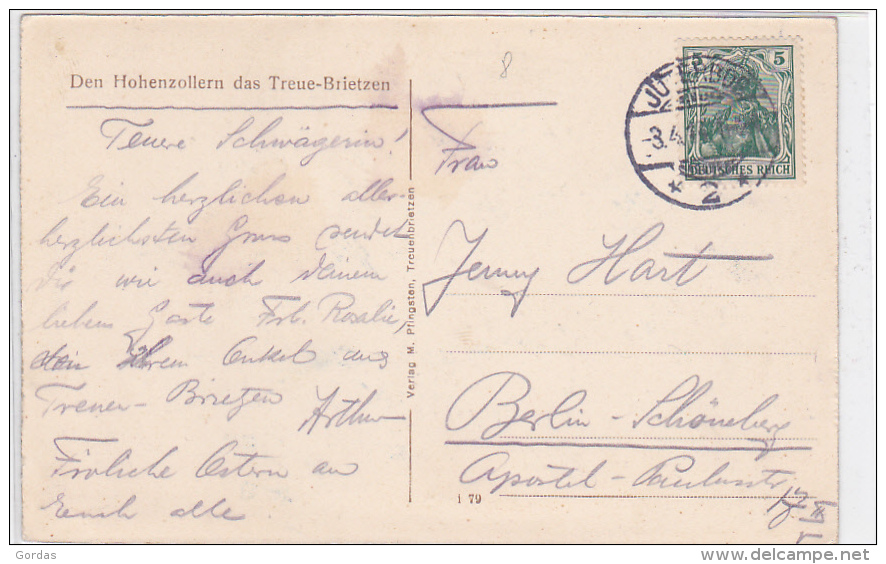 8
Den Hohenzollern das Treue-Brietzen
Teuere Schwägerin!
Ein herzlichen aller-
herzlichsten Gruss sendet
Dir wie auch Deinem
lieben Gaste Frl. Rosalie,
Ihrem Onkel aus
Treuen-Brietzen
Arthur
Fröhliche Ostern an
Euch alle
Verlag M. Pfingsten, Treuenbrietzen
5
DEUTSCHES REICH
JÜTERBOG
-3.4.
* 2 *
Frau
Jenny Hart
Berlin-Schöneberg
Apostel-Paulusstr
17
1 79
Gordas
delcampe.net